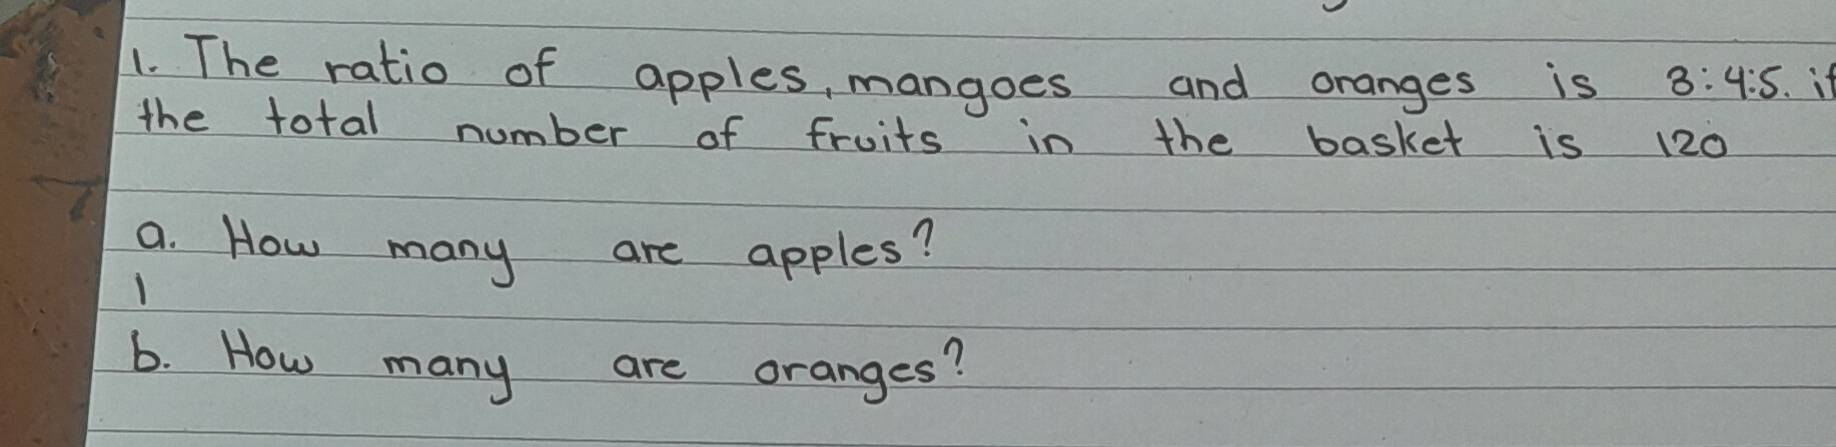 1. The ratio of apples, mangoes and oranges is 3:4:5. if
the total number of fruits in the basket is 120
a. How many are apples?
1
b. How many are oranges?